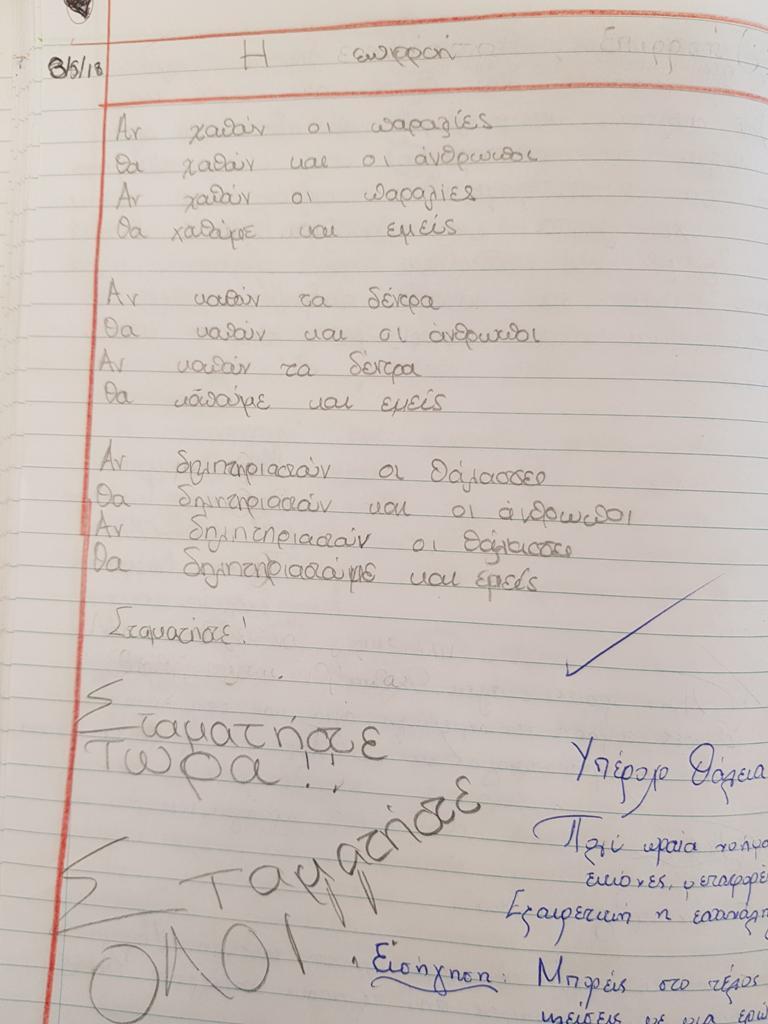 8/5/18 Η επιρροή
Αν χαθάν οι παραλίες
Θα χαθάν και οι άνθρωποι
Αν χαθάν οι παραλίες
Θα χαθάμε και εμείς
Αν καθάν τα δέντρα
Θα καθάν και οι άνθρωποι
Αν καθάν τα δέντρα
Θα καθάμε και εμείς
Αν δηλιτηριαστάν οι θάλασσες
Θα δηλιτηριαστάν και οι άνθρωποι
Αν δηλιτηριαστάν οι θάλασσες
Θα δηλιτηριαστάμε και εμείς
Σταματήστε!
Σταματήστε
Τωρα!!
Σταματήστε
ΟΛΟΙ
Υπέροχο Θάλεια
Πολύ ωραία
εικόνες, μεταφορέ
Εξαιρετική η επανάλη
Εισήγηση: Μπορείς στο τέλος
κλείσεις με μια ερώ